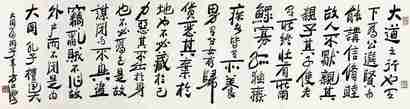 大道之行也天
下為公選賢與
能講信修睦
故人不獨親其
親不獨子其子使老
有所終壯有所用
鰥寡孤獨廢
疾者皆有所養
男有分女有歸
貨惡其棄於
地也不必藏於己
力惡其不出於身
也不必為己是故
謀閉而不興盜
竊亂賊而不作故
外戶而不閉是謂
大同 孔子禮運大同